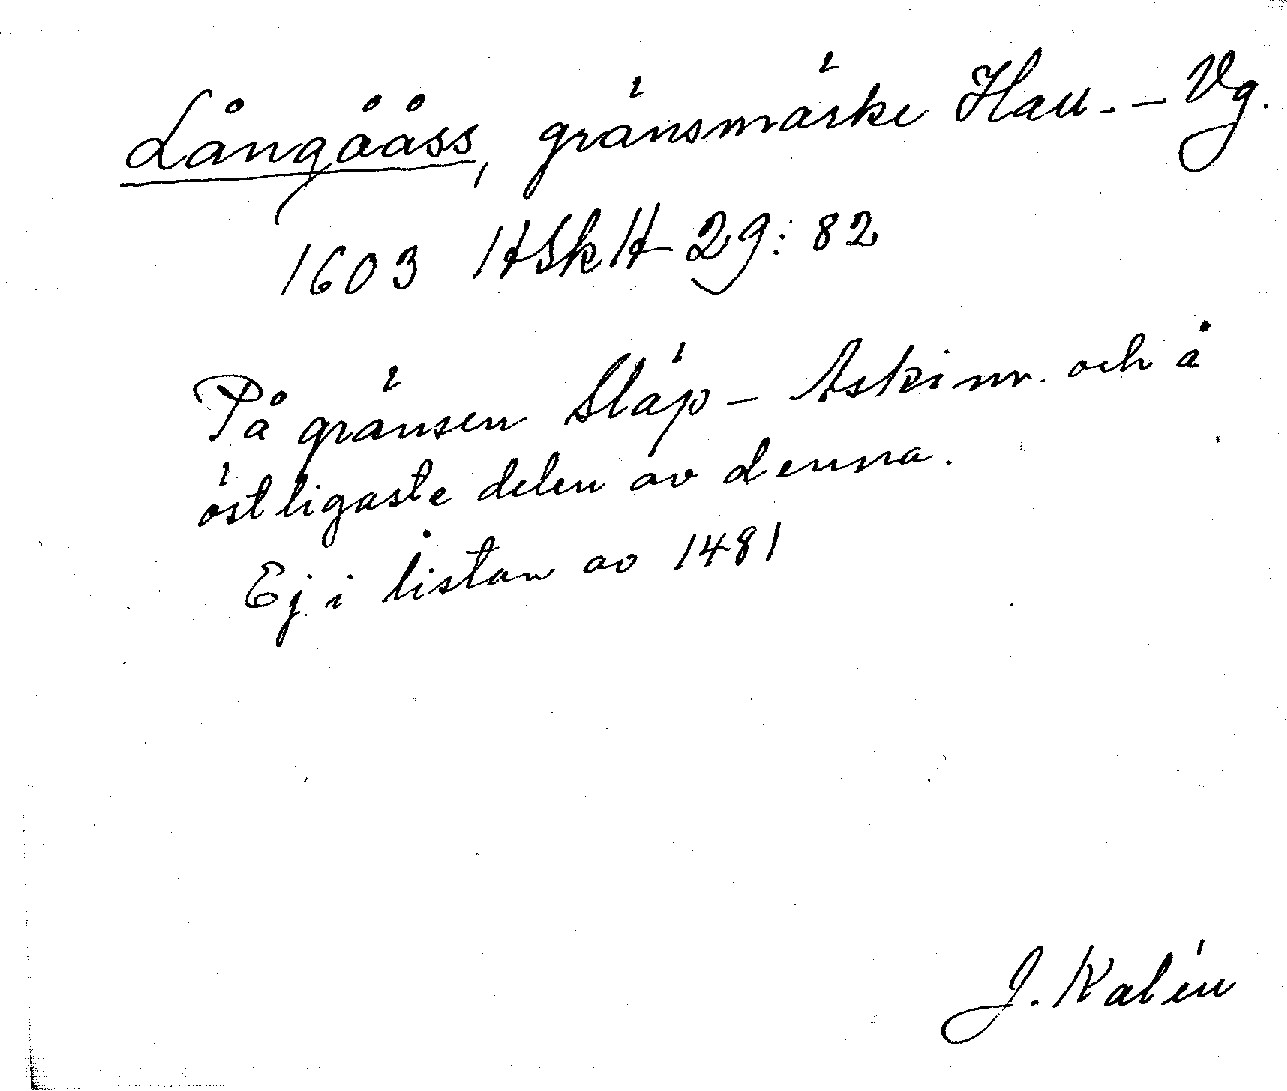 Långååss, gränsmärke Hall. – Vg.
1603 HSkH 29: 82
På gränsen Släp – Askim och å
östligaste delen av denna.
Ej i listan av 1481
J. Kalén